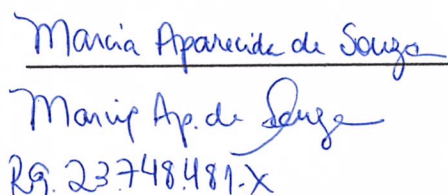 Marcia Aparecida de Souza
Marcia Ap. de Souza
Rg. 23.748.481-X